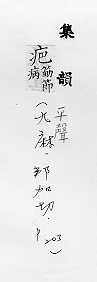 集韻
疤筋節病
平聲
(九麻·邦加切·P203)